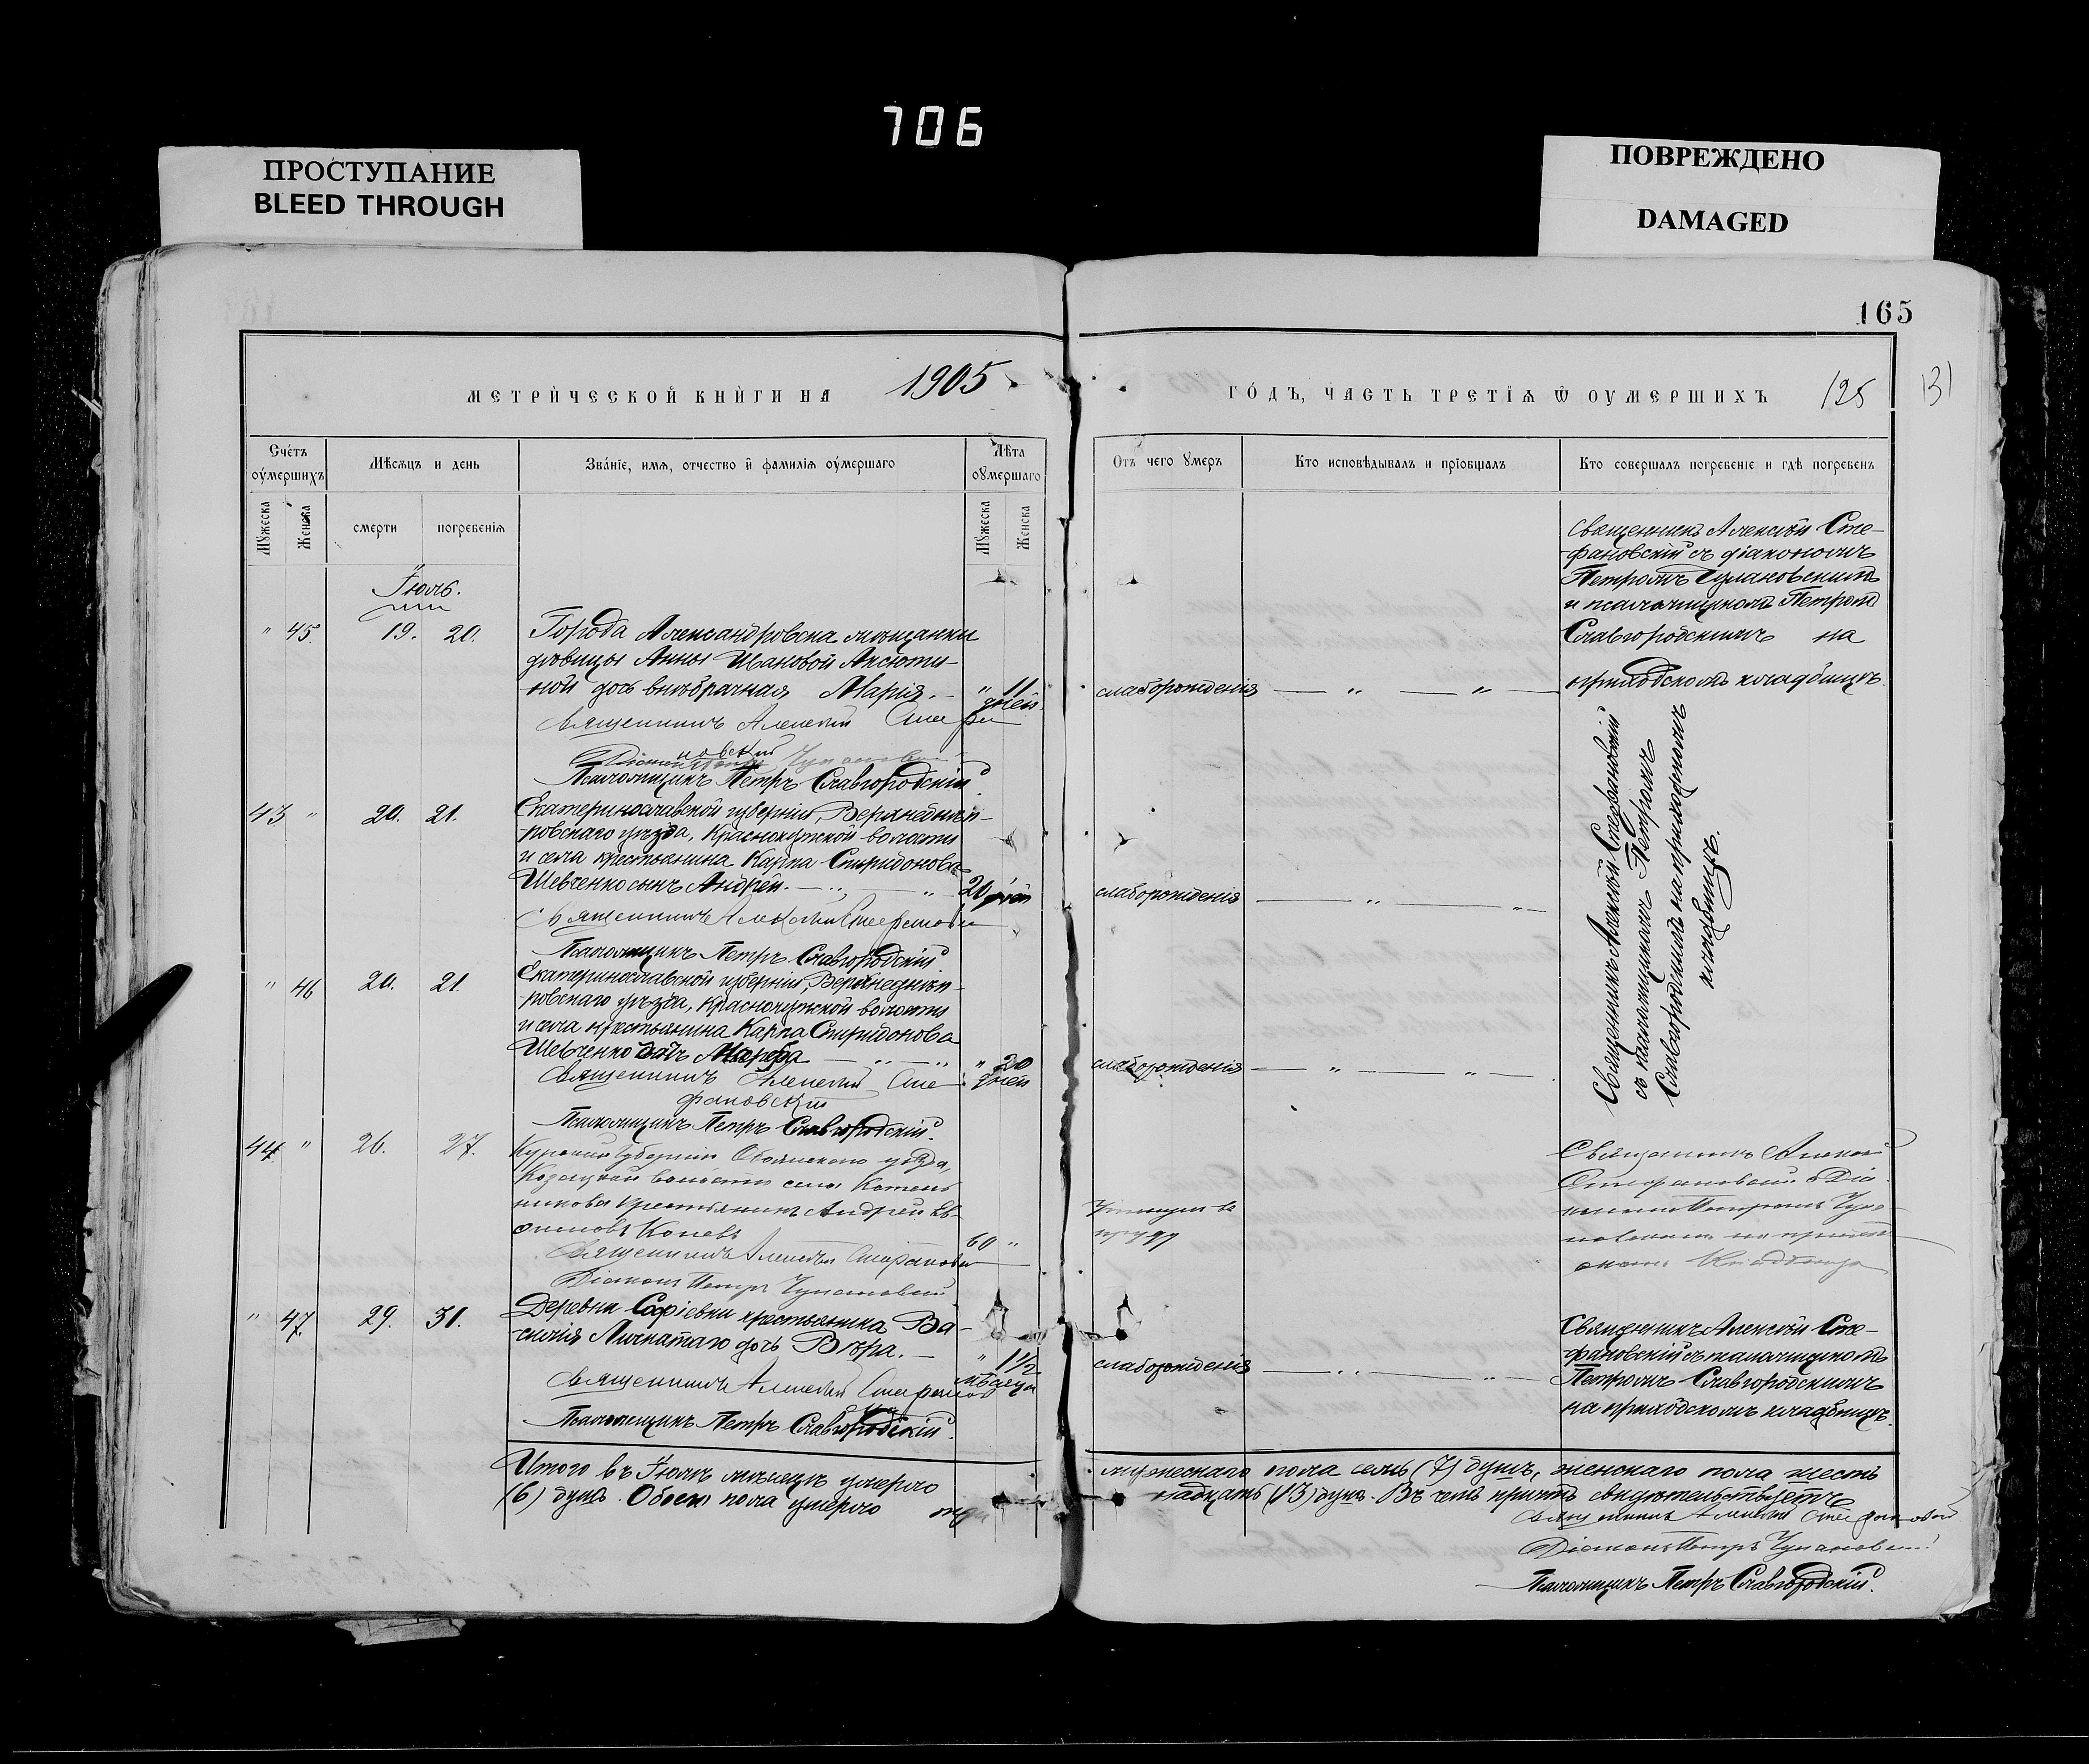 706
ПРОСТУПАНИЕ
BLEED THROUGH
ПОВРЕЖДЕНО
DAMAGED
165
МЕТРИЧЕСКОЙ КНИГИ НА 1905
ГОДЪ, ЧАСТЬ ТРЕТІѦ Ѿ ОУМЕРШИХЪ 125
131
Счетъ оумершихъ
Мѣсѧцъ и день
Званіе, имѧ, отчество и фамиліѧ оумершаго
Лѣта оумершаго
Мужеска
Женска
смерти
погребеніѧ
Мужеска
Женска
Отъ чего умеръ
Кто исповѣдывалъ и пріобщалъ
Кто совершалъ погребеніе и гдѣ погребенъ
Іюль.
" 45. 19. 20.
Города Александровска мѣщанки
дѣвицы Анны Ивановой Аксюти-
ной дочь внѣбрачная Марія.
" 11 дней
слаборожденія
Священникъ Алексѣй Сте-
фановскій съ діакономъ
Петромъ Чулановскимъ
и псаломщикомъ Петромъ
Славгородскимъ на
приходскомъ кладбищѣ.
Священникъ Алексѣй Стефа
новскій
Діаконъ
Псаломщикъ Петръ Славгородскій.
43 " 20. 21.
Екатеринославской губерніи, Верхнеднѣп-
ровскаго уѣзда, Краснокутской волости
и села крестьянина Карпа Спиридонова
Шевченко сынъ Андрей.
20 дней
слаборожденія
Священникъ Алексѣй Стефановскій
съ псаломщикомъ Петромъ
Славгородскимъ на приходскомъ
кладбищѣ.
Священникъ Алексѣй Стефановск
Псаломщикъ Петръ Славгородскій.
" 46 20. 21.
Екатеринославской губерніи, Верхнеднѣп-
ровскаго уѣзда, Краснокутской волости
и села крестьянина Карпа Спиридонова
Шевченко дочь
" 20 дней
слаборожденія
Священникъ Алексѣй Сте
фановскій
Псаломщикъ Петръ Славгородскій.
44 " 26. 27.
Курской губерніи Обоянскаго уѣзда,
Козацкой волости села Котель
никова крестьянинъ Андрей
Коневъ
60 "
въ
пруду
Священникъ Алексѣй
Стефановскій съ Діа
кономъ Петромъ
Священникъ Алексѣй Стефановск
Діаконъ Петръ
" 47. 29. 31.
Деревни Софіевки крестьянина Ва-
силія дочь Вѣра.
" 1½ мѣсяца
слаборожденія
Священникъ Алексѣй Сте-
фановскій съ псаломщикомъ
Петромъ Славгородскимъ
на приходскомъ кладбищѣ.
Священникъ Алексѣй Стефанов
Псаломщикъ Петръ Славгородскій.
Итого въ Іюлѣ мѣсяцѣ умерло мужескаго пола семь (7) душъ, женскаго пола шесть
(6) душъ. Обоего пола умерло три надцать (13) душъ. Въ чемъ причтъ свидѣтельствуетъ
Священникъ Алексѣй Стефановскій
Діаконъ Петръ
Псаломщикъ Петръ Славгородскій.